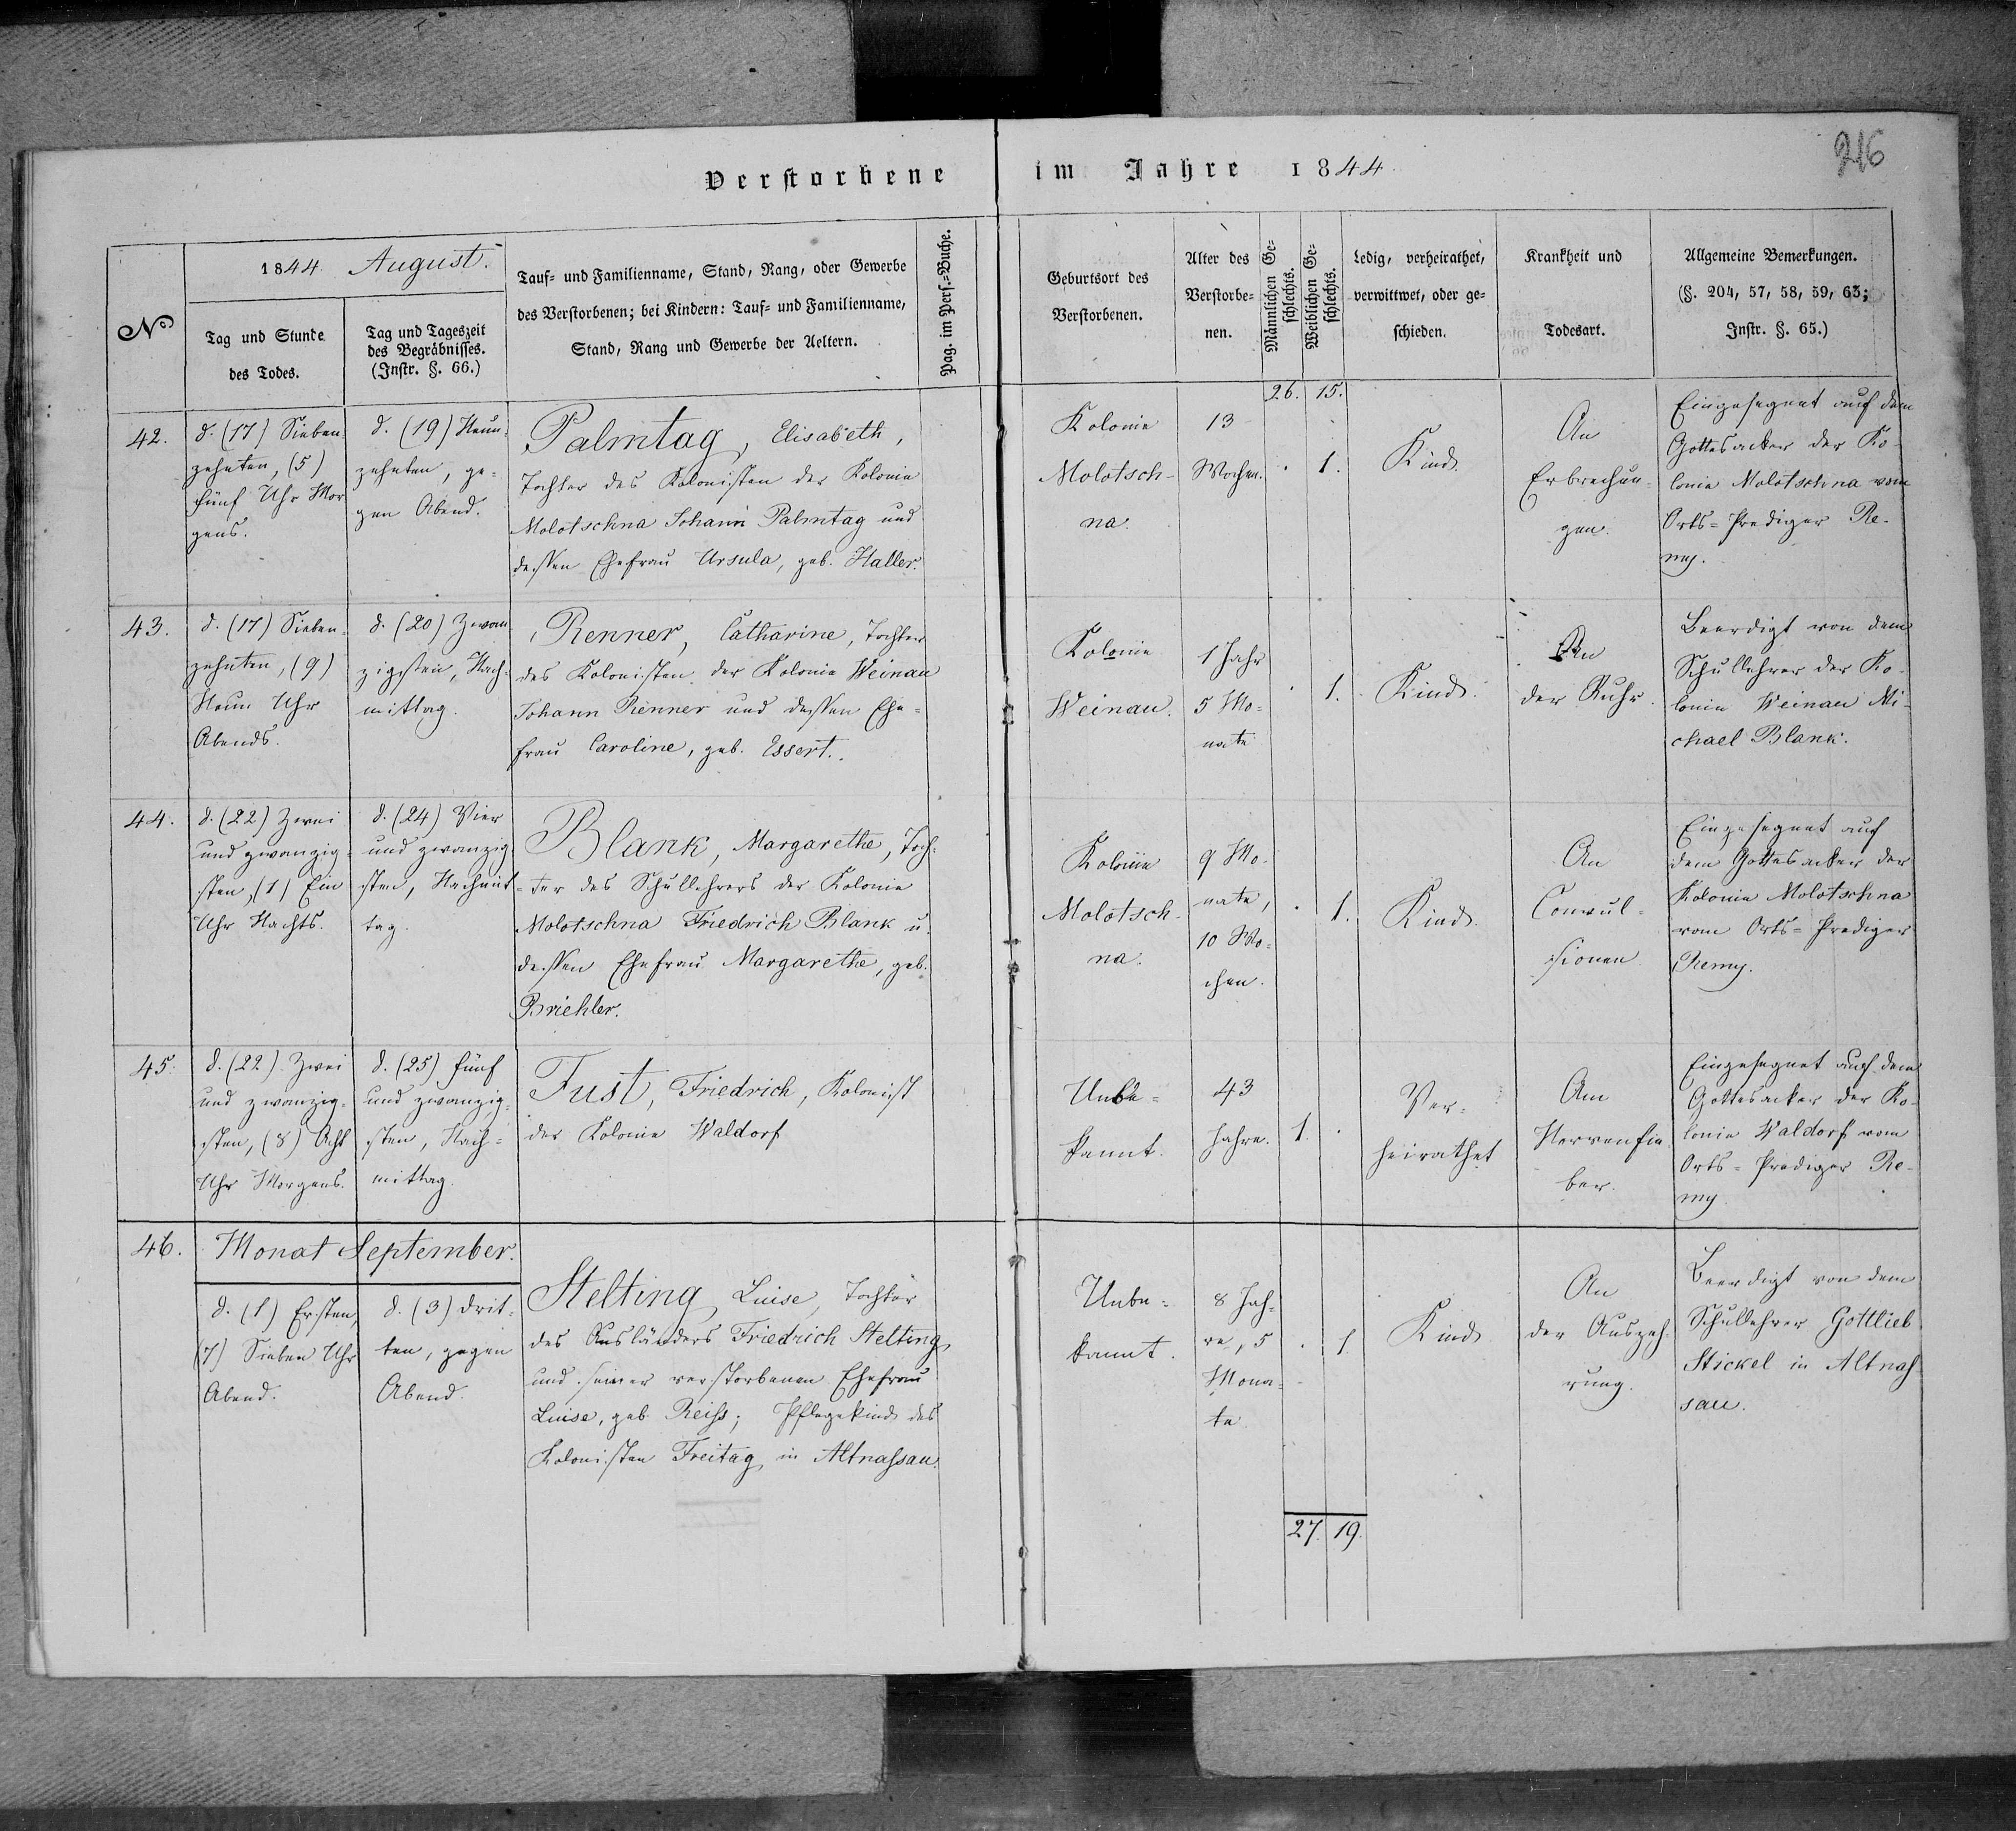 Verstorbene im Jahre 1844
216
No
1844. August.
Tag und Stunde
des Todes.
Tag und Tageszeit
des Begräbnisses.
(Instr. §. 66.)
Tauf- und Familienname, Stand, Rang, oder Gewerbe
des Verstorbenen; bei Kindern: Tauf- und Familienname,
Stand, Rang und Gewerbe der Aeltern.
Pag. im Pers.-Buche.
Geburtsort des
Verstorbenen.
Alter des
Verstorbe-
nen.
Männlichen Ge-
schlechts.
Weiblichen Ge-
schlechts.
Ledig, verheirathet,
verwittwet, oder ge-
schieden.
Krankheit und
Todesart.
Allgemeine Bemerkungen.
(§. 204, 57, 58, 59, 63;
Instr. §. 65.)
26. 15.
42.
d. (17) Sieben-
zehnten, (5)
fünf Uhr Mor
gens.
d. (19) Neun-
zehnten, ge-
gen Abend.
Palmtag, Elisabeth,
Tochter des Kolonisten der Kolonie
Molotschna Johann Palmtag und
dessen Ehefrau Ursula, geb. Haller.
Kolonie
Molotsch-
na.
13
Wochen.
. 1.
Kind.
An
Erbrechun-
gen.
Eingesegnet auf dem
Gottesacker der Ko-
lonie Molotschna vom
Orts-Prediger Re-
my.
43.
d. (17) Sieben-
zehnten, (9)
Neun Uhr
Abends.
d. (20) Zwan
zigsten, Nach-
mittag.
Renner, Catharine, Tochter
des Kolonisten der Kolonie Weinau
Johann Renner und dessen Ehe-
frau Caroline, geb. Essert.
Kolonie
Weinau.
1 Jahr
5 Mo-
nate
. 1.
Kind.
An
der Ruhr.
Beerdigt von dem
Schullehrer der Ko-
lonie Weinau Mi-
chael Blank.
44.
d. (22) Zwei
und zwanzig-
sten, (1) Ein
Uhr Nachts.
d. (24) Vier
und zwanzig
sten, Nachmit-
tag.
Blank, Margarethe, Toch-
ter des Schullehrers der Kolonie
Molotschna Friedrich Blank u.
dessen Ehefrau Margarethe, geb.
Briehler.
Kolonie
Molotsch-
na.
9 Mo-
nate,
10 Wo-
chen.
. 1.
Kind.
An
Convul-
sionen
Eingesegnet auf
dem Gottesacker der
Kolonie Molotschna
vom Orts-Prediger
Remy.
45.
d. (22) Zwei
und zwanzig-
sten, (8) Acht
Uhr Morgens.
d. (25) fünf
und zwanzig-
sten, Nach-
mittag.
Fust, Friedrich, Kolonist
der Kolonie Waldorf
Unbe-
kannt.
43
Jahre.
1. .
Ver-
heirathet
Am
Nervenfie
ber.
Eingesegnet auf dem
Gottesacker der Ko-
lonie Waldorf vom
Orts-Prediger Re-
my
46.
Monat September.
d. (1) Ersten,
(7) Sieben Uhr
Abend.
d. (3) Drit-
ten, gegen
Abend.
Stelting, Luise, Tochter
des Ausländers Friedrich Stelting,
und seiner verstorbenen Ehefrau
Luise, geb. Reiss; Pflegekind des
Kolonisten Freitag in Altnassau.
Unbe-
kannt.
8 Jah-
re, 5
Mona-
te
. 1.
Kind
An
der Auszeh-
rung.
Beerdigt von dem
Schullehrer Gottlieb
Stickel in Altnas
sau.
27. 19.